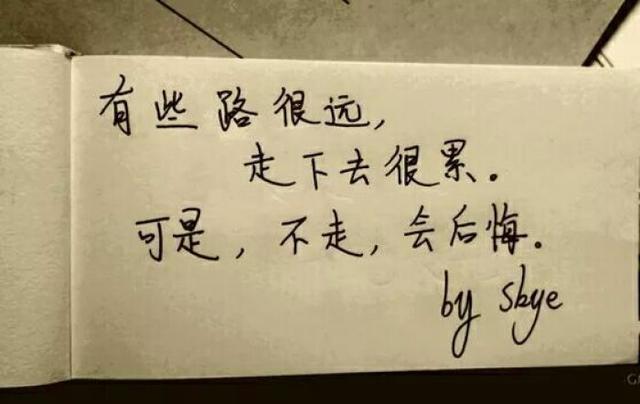 有些路很远,
走下去很累。
可是,不走,会后悔。
by skye